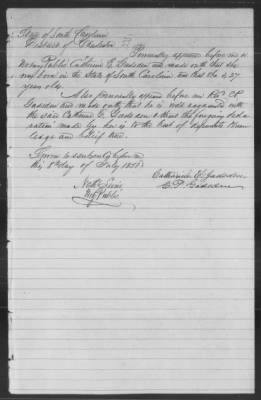 State of South Carolina
District of Charleston
Personally appeared before me a
Notary Public Catherine E. Gadsden and made oath that she
was born in the State of South Carolina and that she is 27
years old.
Also personally appears before me Revd C P
Gadsden and made oath that he is well acquainted with
the said Catherine E. Gadsden & that the foregoing decla
ration made by her is to the best of deponents know
ledge and belief true.
Sworn to & subscribed before me
this 8th day of July 1858
Catharine E. Gadsden
C. P. Gadsden
Not Public